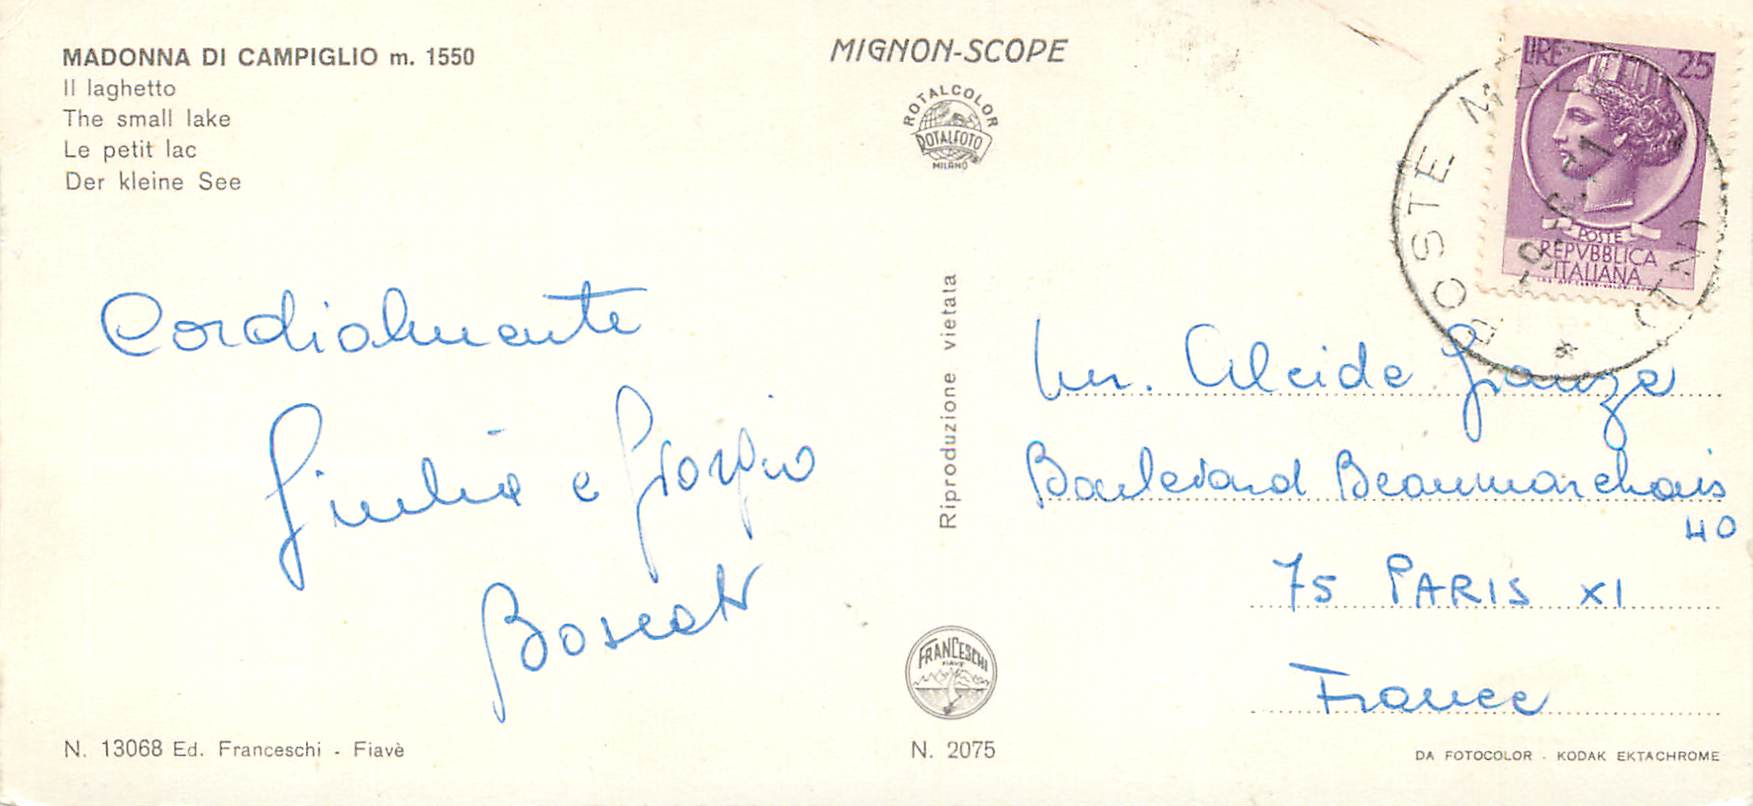 MADONNA DI CAMPIGLIO m. 1550
Il laghetto
The small lake
Le petit lac
Der kleine See
MIGNON-SCOPE
ROTALCOLOR
ROTALFOTO
MILANO
LIRE 25
POSTE
REPVBBLICA
ITALIANA
POSTE
Cordialmente
Giulia e Giorgio
Boscati
Riproduzione vietata
Alcide
Boulevard Beaumarchais
40
75 PARIS XI
France
FRANCESCHI
FIAVÈ
N. 13068 Ed. Franceschi - Fiavè
N. 2075
DA FOTOCOLOR - KODAK EKTACHROME